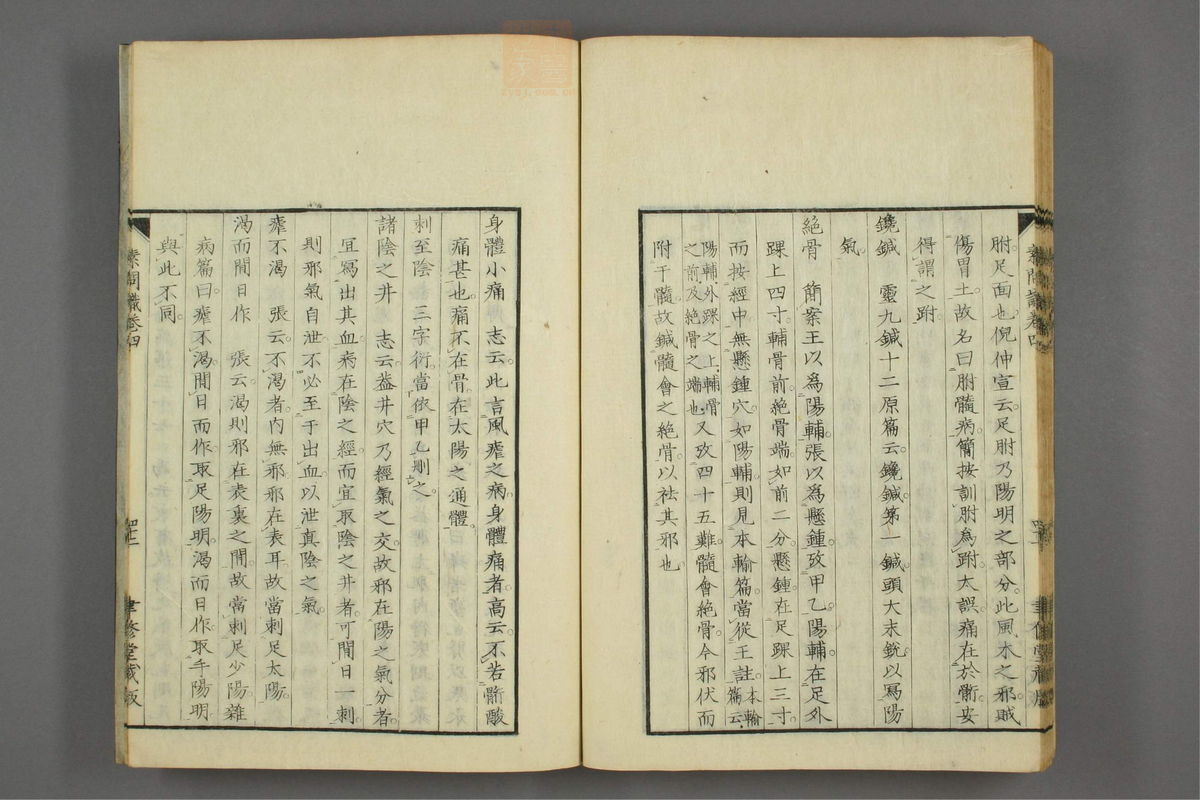 胕足面也倪仲宣云足胕乃陽明之部分此風木之邪賊
傷胃土故名曰胕髓病簡按訓胕為跗太誤痛在於骱安
得謂之跗
鑱鍼　靈九鍼十二原篇云鑱鍼第一鍼頭大末銳以寫陽
氣
絕骨　簡案王以為陽輔張以為懸鍾攷甲乙陽輔在足外
踝上四寸輔骨前絕骨端如前二分懸鍾在足踝上三寸
而按經中無懸鍾穴如陽輔則見本輸篇當從王註本輸篇云
陽輔外踝之上輔骨之前及絕骨之端也又攷四十五難髓會絕骨今邪伏而
附于髓故鍼髓會之絕骨以祛其邪也
素問識卷四
聿修堂藏版
身體小痛　志云此言風瘧之病身體痛者高云不若骱酸
痛甚也痛不在骨在太陽之通體
刺至陰　三字衍當依甲乙刪之
諸陰之井　志云葢井穴乃經氣之交故邪在陽之氣分者
宜寫出其血病在陰之經而宜取陰之井者可間日一刺
則邪氣自泄不必至于出血以泄真陰之氣
瘧不渴　張云不渴者內無邪邪在表耳故當刺足太陽
渴而間日作　張云渴則邪在表裏之間故當刺足少陽雜
病篇曰瘧不渴間日而作取足陽明渴而日作取手陽明
與此不同
素問識卷四
聿修堂藏版